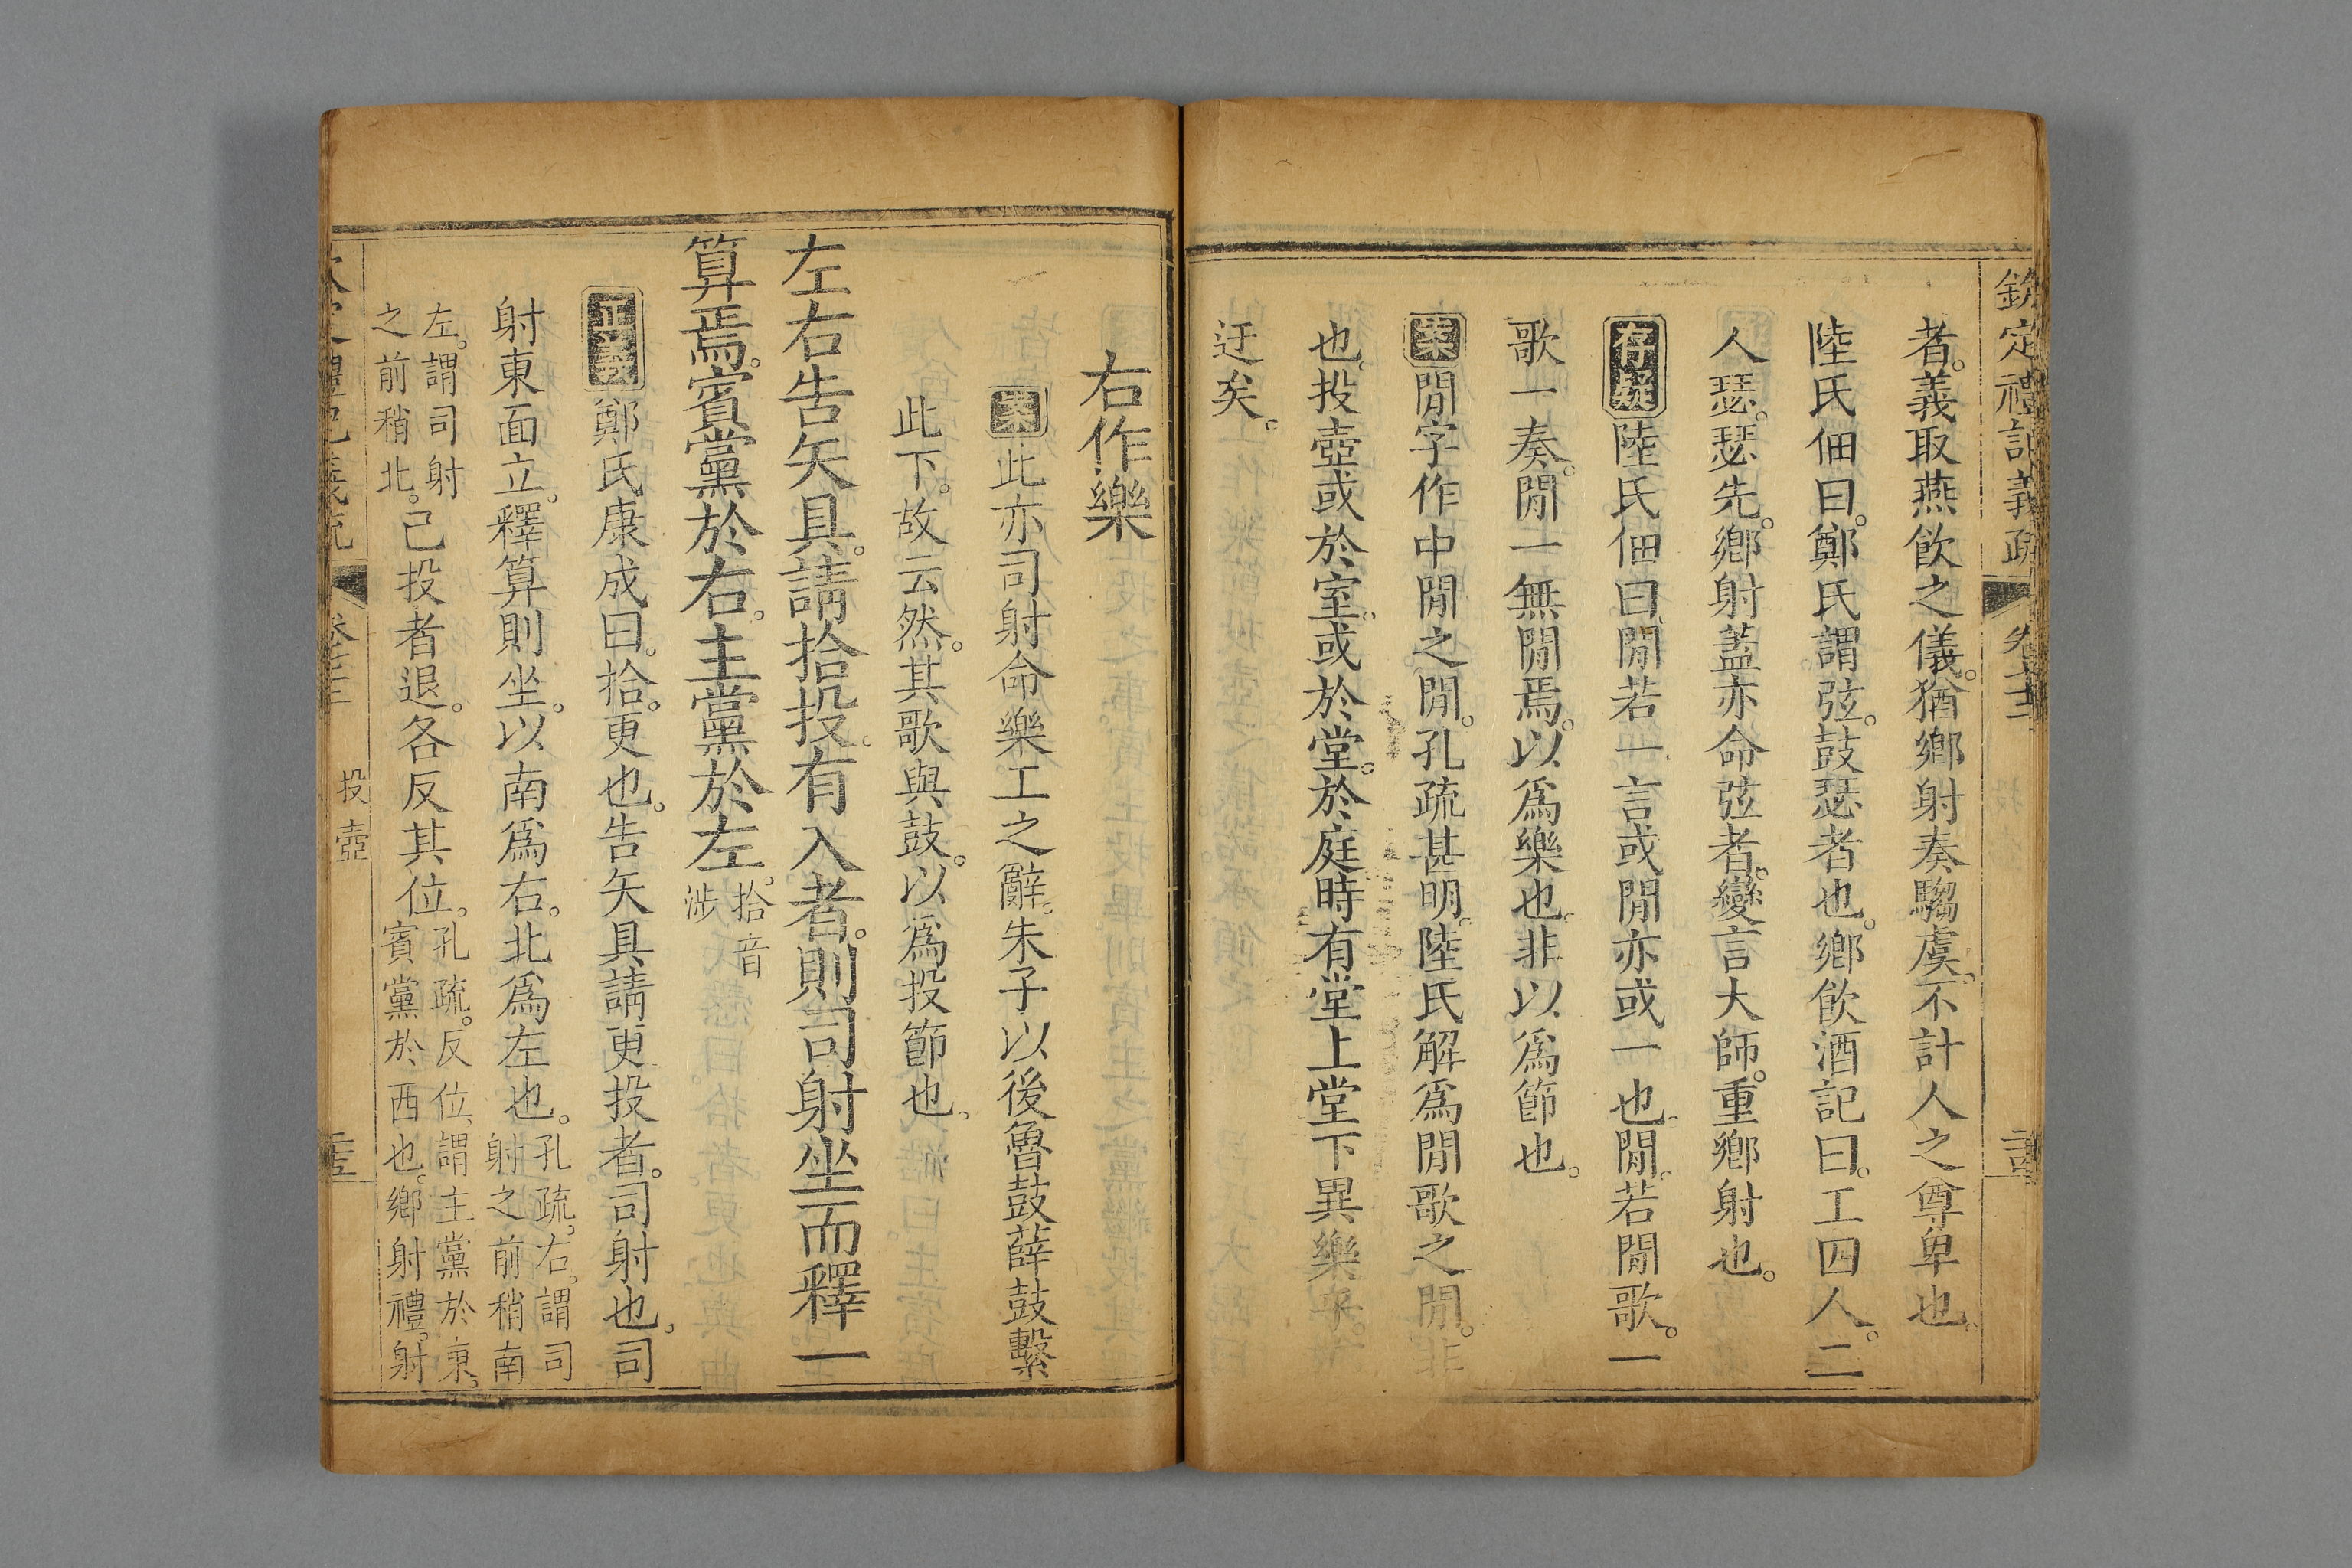 欽定禮記義疏
者。義取燕飲之儀。猶鄉射奏騶虞。不計人之尊卑也。
陸氏佃曰。鄭氏謂弦。鼓瑟者也。鄉飲酒記曰。工四人。二
人瑟。瑟先。鄉射蓋亦命弦者。變言大師。重鄉射也。
存疑陸氏佃曰。閒若一言或閒亦或一也。閒。若閒歌。一
歌一奏。閒一無閒焉。以爲樂也。非以爲節也。
案閒字作中閒之閒。孔疏甚明。陸氏解爲閒歌之閒。非
也。投壺或於室。或於堂。於庭時有堂上堂下異樂乎。
迂矣。
右作樂
案此亦司射命樂工之辭。朱子以後魯鼓薛鼓繫
此下。故云然。其歌與鼓。以爲投節也。
左右告矢具。請拾投。有入者。則司射坐而釋一
算焉。賓黨於右。主黨於左。拾音
涉
正義鄭氏康成曰。拾。更也。告矢具請更投者。司射也。司
射東面立。釋算則坐。以南爲右。北爲左也。孔疏。右。謂司
射之前稍南
左。謂司射
之前稍北。己投者退。各反其位。孔疏。反位。謂主黨於東。
賓黨於西也。鄉射禮。射
投壺